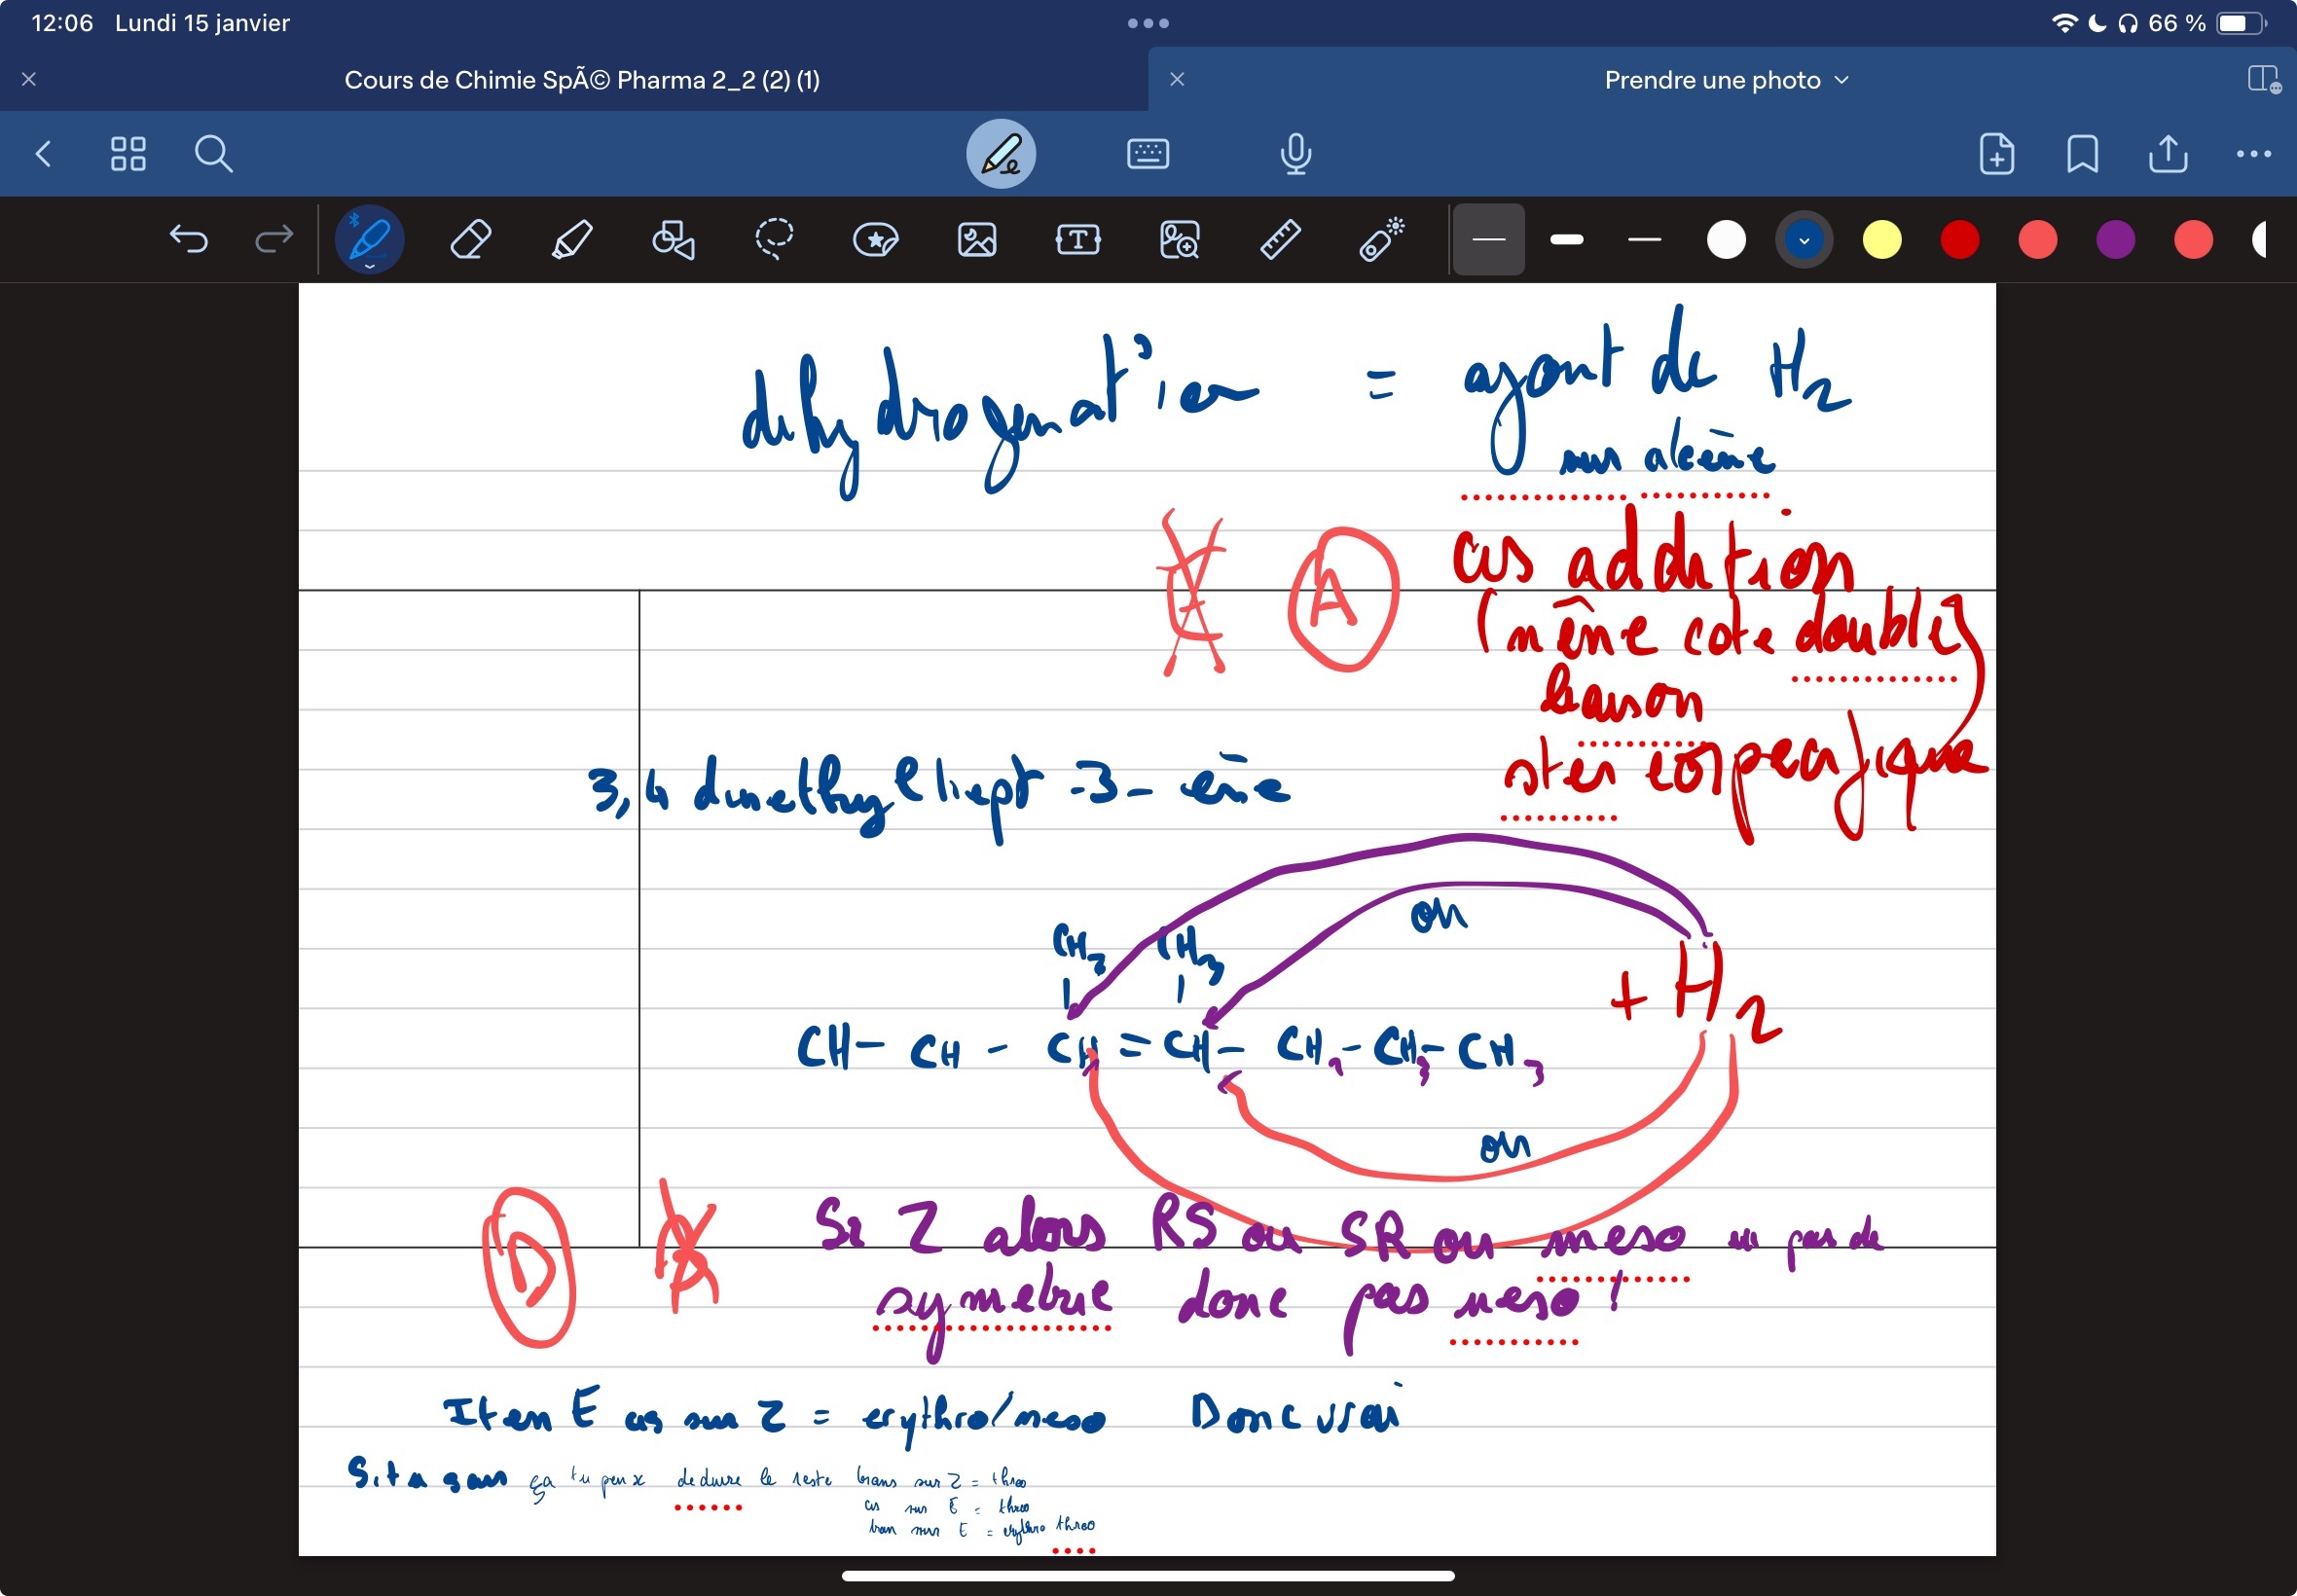 12:06 Lundi 15 janvier
66 %
Cours de Chimie SpÃ© Pharma 2_2 (2) (1)
Prendre une photo
dihydrogenation = ajout de H2
sur alcène
A cis addition
(même cote double
liaison
3,4 dimethyl hept-3-ène
CH3 CH3
ou
+ H2
CH - CH - CH = CH - CH2 - CH2 - CH3
ou
D Si Z alors RS ou SR ou meso ici pas de
symetrie donc pas meso !
Item E cis sur Z = erythro/meso Donc vrai
Si tu sais ça tu peux deduire le reste trans sur Z = threo
cis sur E = threo
tran sur E = erythro threo